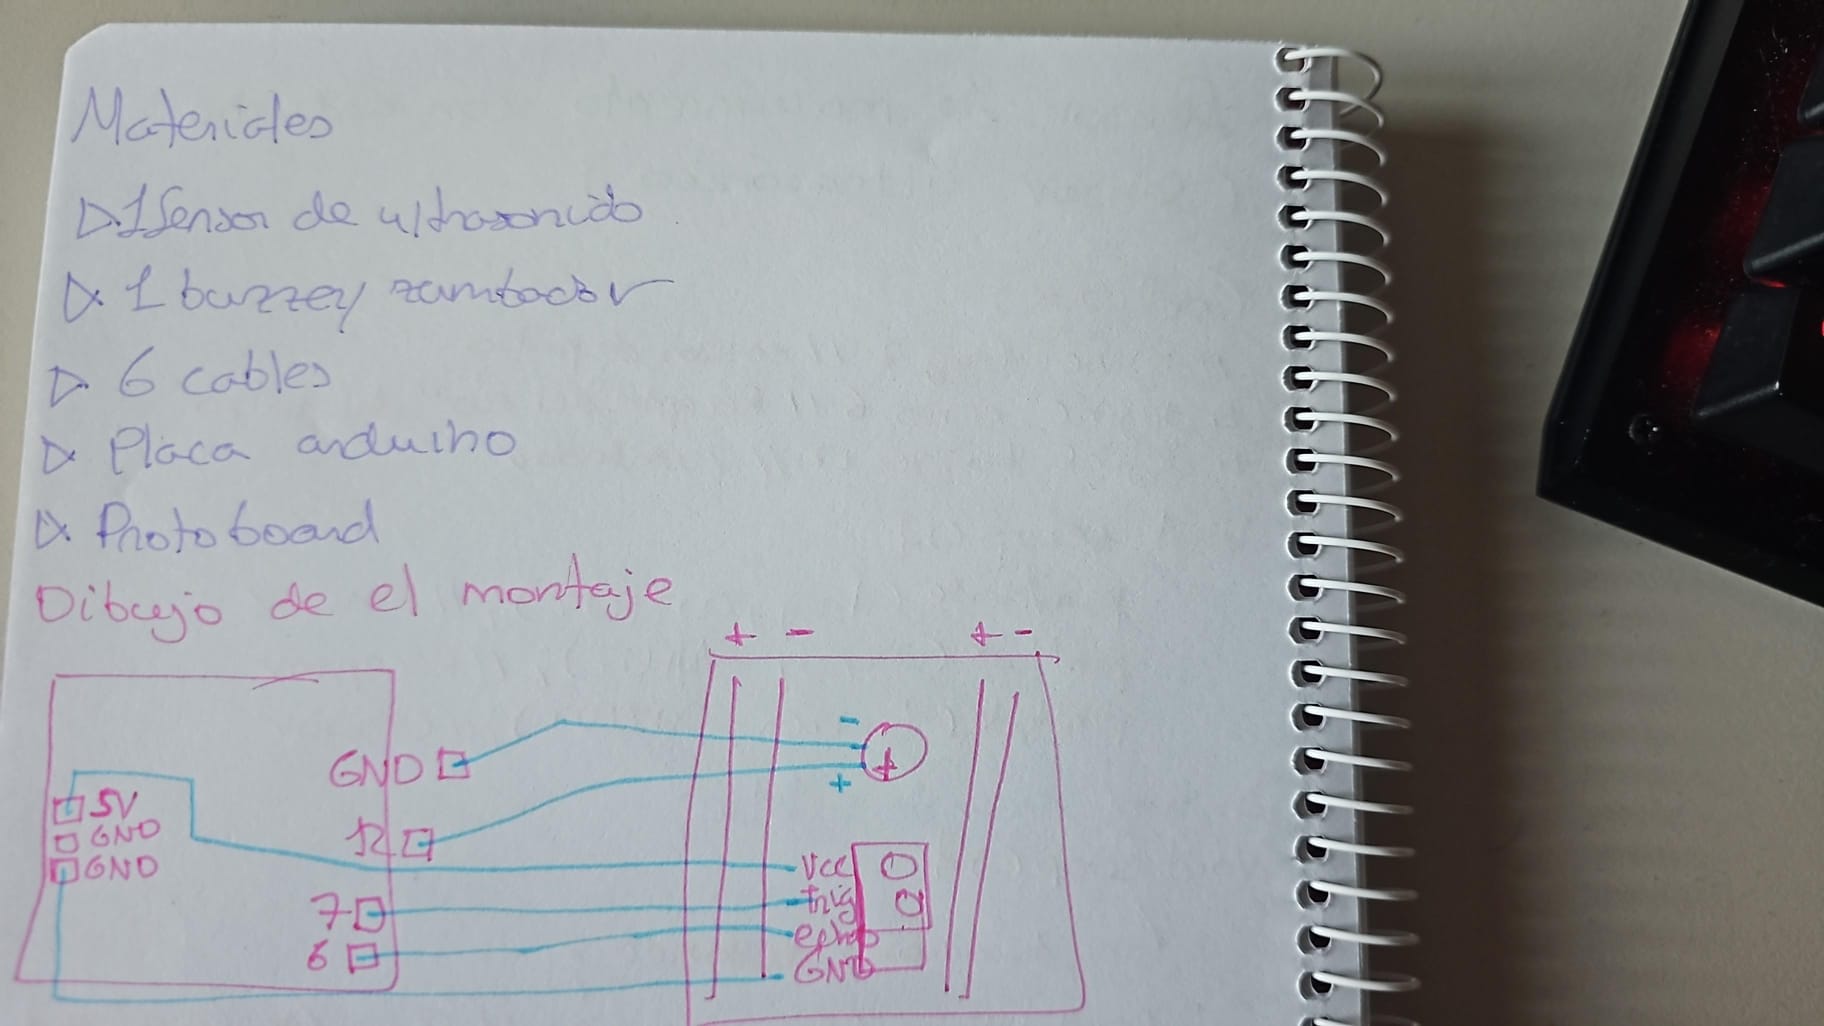 Materiales
▷ 1 Sensor de ultrasonido
▷ 1 buzzey zumbador
▷ 6 cables
▷ Placa arduino
▷ Protoboard
Dibujo de el montaje
+ - + -
GND
-
+
+
12
5V
GND
GND
7
6
Vcc
trig
echo
GND